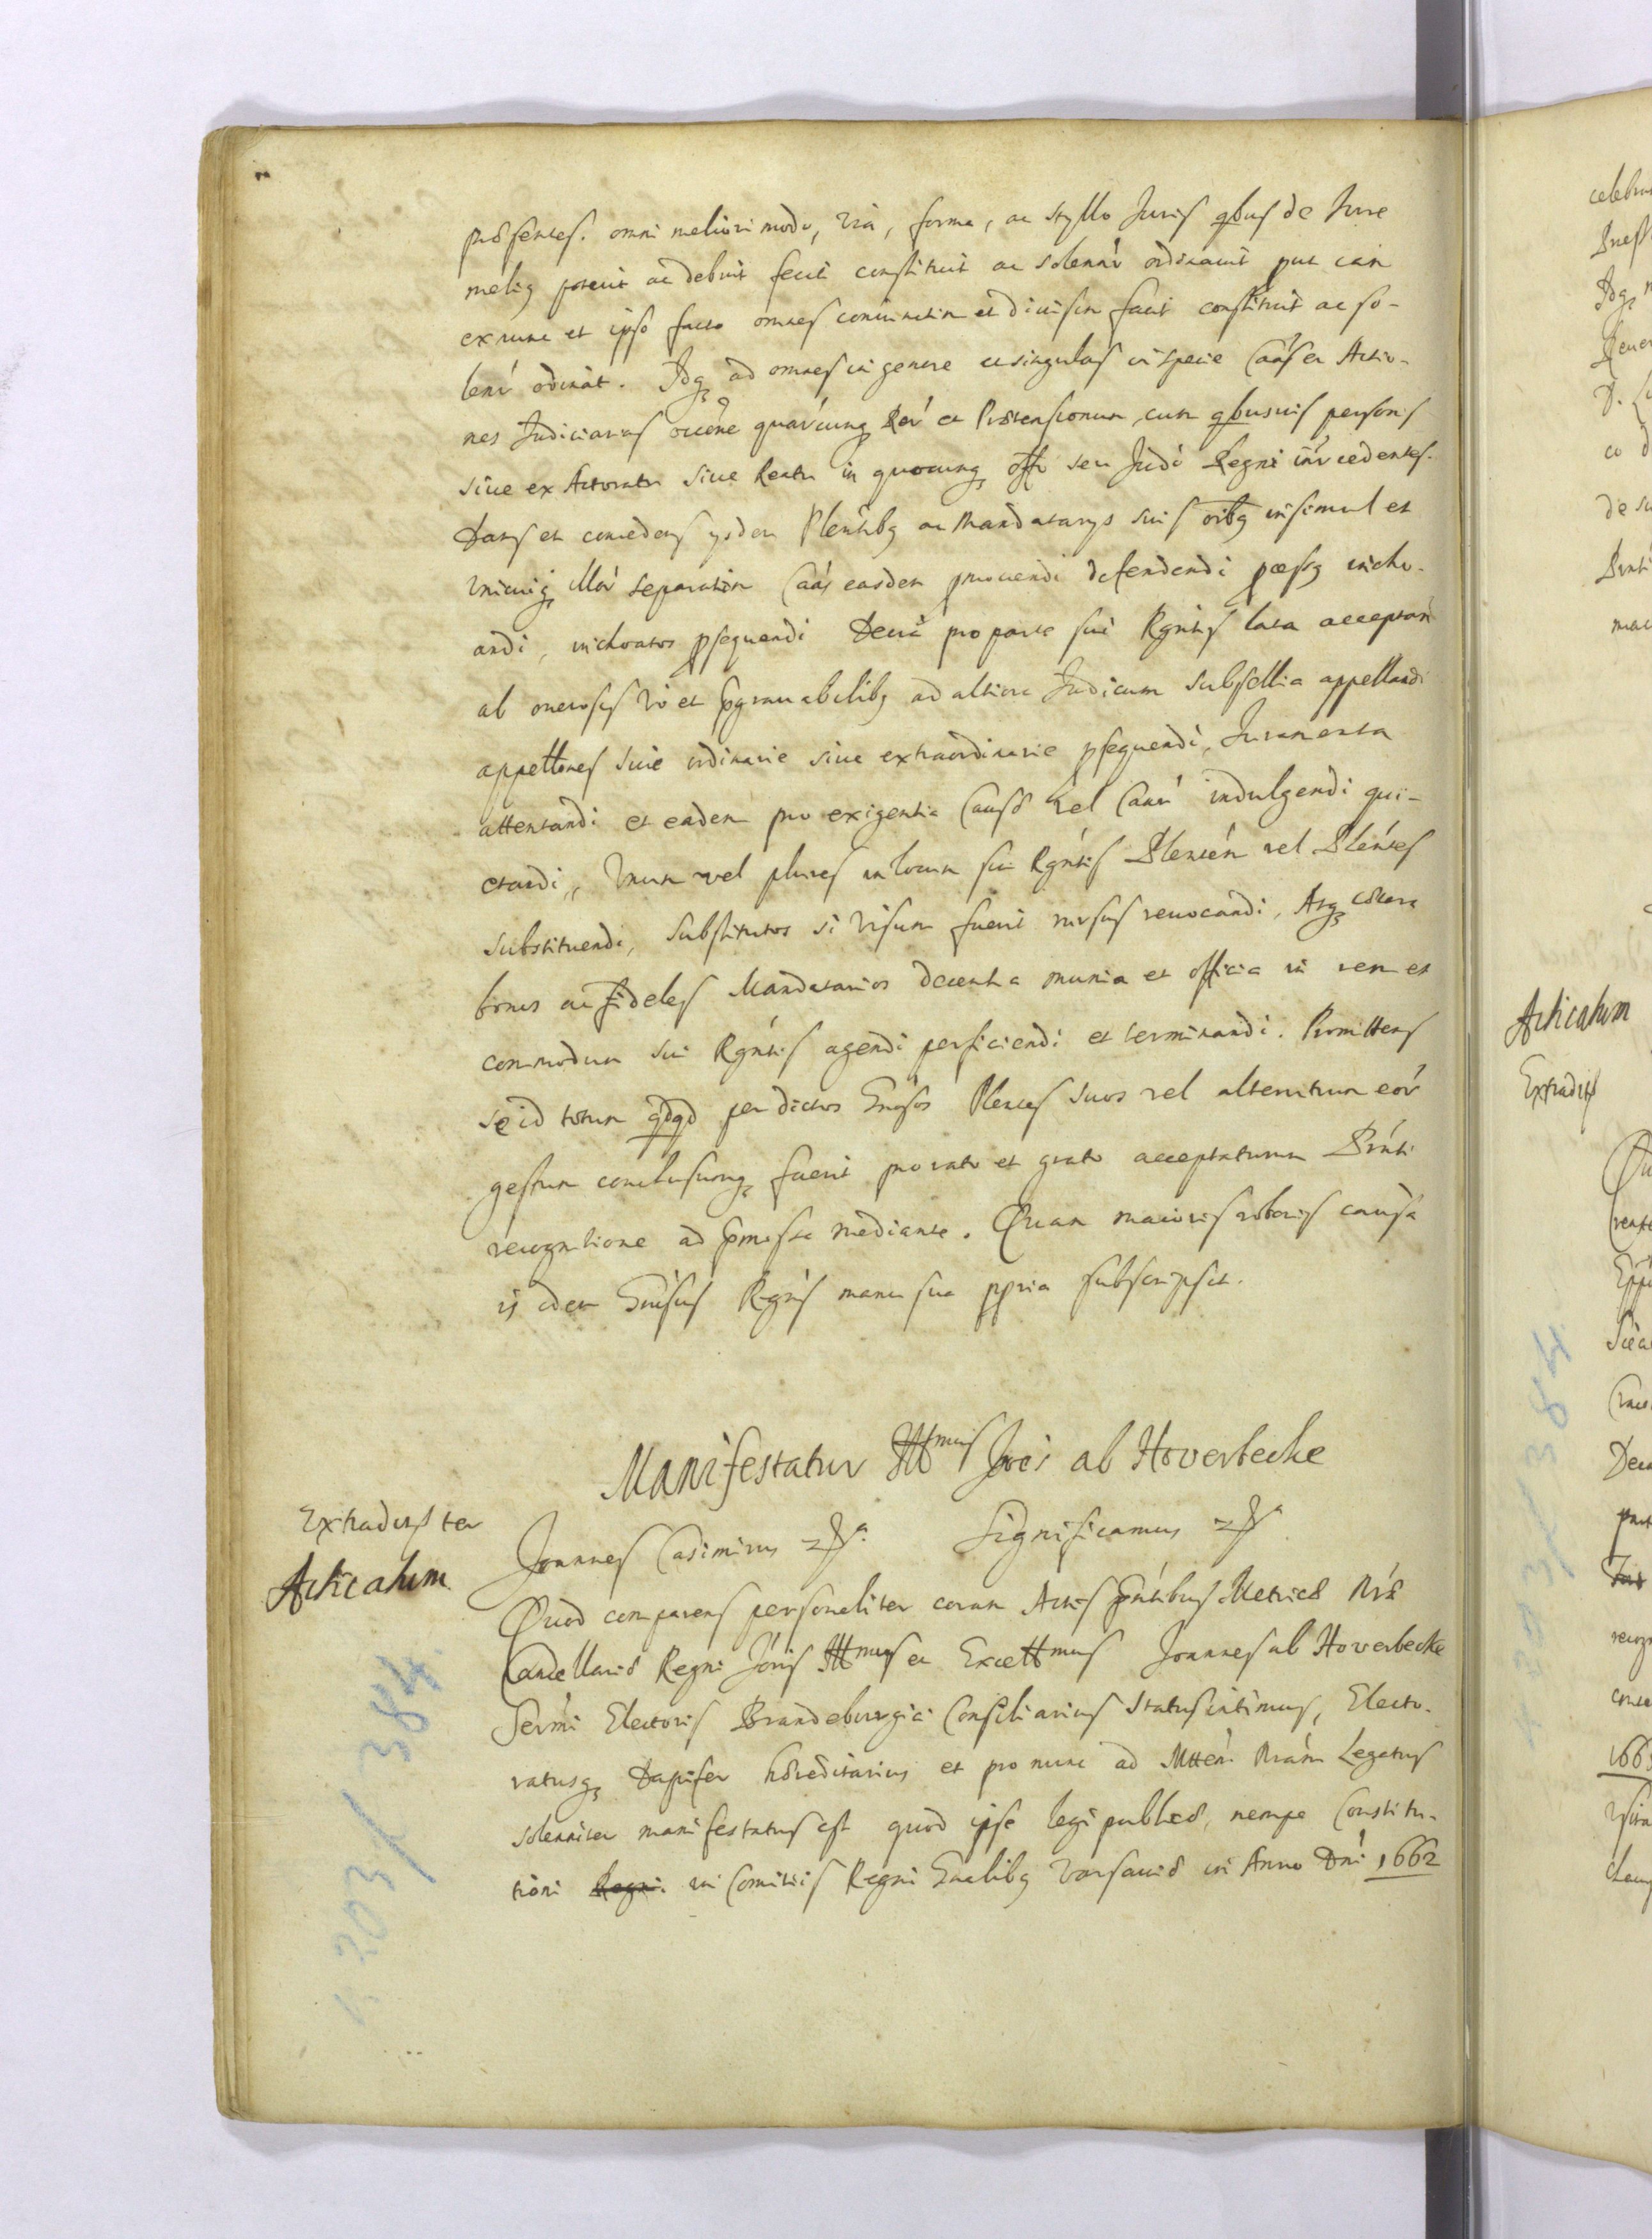 præsentes. omni meliori modo, via, forma, ac stylo Juris qbus de Jure
meliq potuit ac debuit fecit constituit ac solennr ordinavit put iam
ex nunc et ipso facto omnes coniunctim et divisim facit constituit ac so-
lenr ordinat. Idq ad omnes in genere ac singulas in specie Caās et Actio-
nes Judiciarias quarcunq Rer et Prætensionum, cum qbusvis personis
sive ex Actoratu sive Reatu in quocunq offo seu Judo Regni intrcedentes.
Dans et concedens ysdem Plentibq ac Mandatarys suis oibq insimul et
unicuiq illor separatim Caās easdem pmovendi defendendi pcessq incho-
andi, inchoatos psequendi Decta pro parte sui Rgntis lata acceptandi
ab onerosis vo et pgravabilibq ad altiora Judicum subsellia appellandi
appellones sive ordinarie sive extraordinarie psequendi, Juramenta
attentandi et eadem pro exigentia Causæ vel Caar indulgendi qui-
ctandi, Unum vel plures in locum sui Rgntis Plentem vel Plentes
substituendi, substitutos si visum fuerit rursus revocandi, Atq cætera
bonos ac fideles Mandatarios decentia munia et officia in rem et
commodum sui Rgntis agendi perficiendi et terminandi. Promittens
se id totum qdqd per dictos Gnosos Plentes suos vel alterutrum eor
gestum conclusumq fuerit pro rato et grato acceptaturum Pnti
recognitione ad pmissa mediante. Quam maioris roboris causa
is idem Gnosus Rgns manu sua ppria subscripsit.
Manifestatur Illmus Joēs ab Hoverbecke
Extradit ter
Joannes Casimirus Significamus
Acticatum
Quod comparens personaliter coram Actis pntibus Metricæ Nræ
Cancellariæ Regni Joris Illmus et Excellmus Joannes ab Hoverbecke
Sermi Electoris Brandeburgici Consiliarius Status intimus, Electo-
ratusq Dapifer hæreditarius et pro nunc ad Mttem Nram Legatus
solenniter manifestatus est quod ipse legi publicæ, nempe Constitu-
tioni Regni in Comitiis Regni Gnalibq Varsaviæ in Anno Dni 1662
1. 203/384.
Acticatum
Extradit